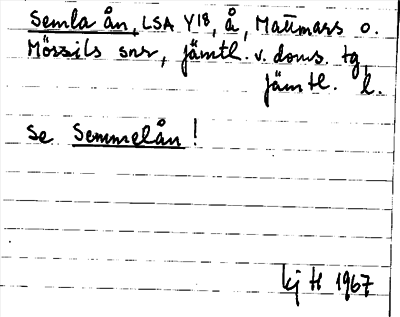 Semla ån, LSA Y18, å, Mattmars o.
Mörsils snr, jämtl. v. doms. tg,
jämtl. l.
se Semmelån!
kj H 1967